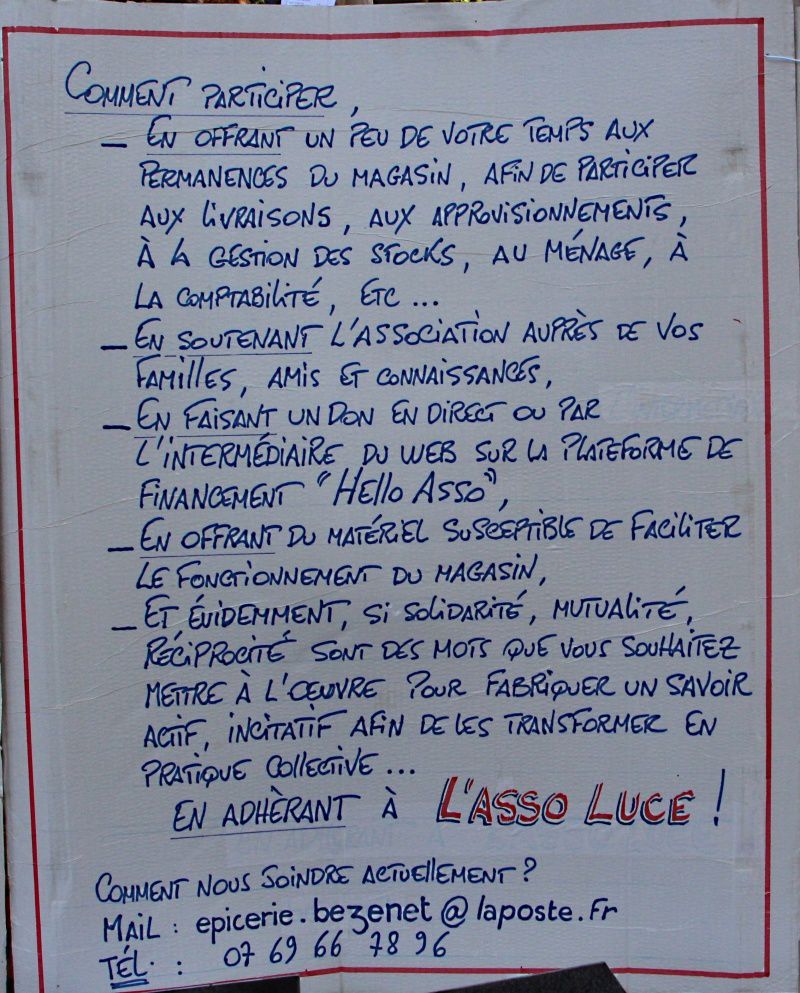 COMMENT PARTICIPER,
— EN OFFRANT UN PEU DE VOTRE TEMPS AUX
PERMANENCES DU MAGASIN, AFIN DE PARTICIPER
AUX LIVRAISONS, AUX APPROVISIONNEMENTS,
À LA GESTION DES STOCKS, AU MÉNAGE, À
LA COMPTABILITÉ, ETC ...
— EN SOUTENANT L'ASSOCIATION AUPRÈS DE VOS
FAMILLES, AMIS ET CONNAISSANCES,
— EN FAISANT UN DON EN DIRECT OU PAR
L'INTERMÉDIAIRE DU WEB SUR LA PLATEFORME DE
FINANCEMENT "HELLO ASSO",
— EN OFFRANT DU MATÉRIEL SUSCEPTIBLE DE FACILITER
LE FONCTIONNEMENT DU MAGASIN,
— ET ÉVIDEMMENT, SI SOLIDARITÉ, MUTUALITÉ,
RÉCIPROCITÉ SONT DES MOTS QUE VOUS SOUHAITEZ
METTRE À L'ŒUVRE POUR FABRIQUER UN SAVOIR
ACTIF, INCITATIF AFIN DE LES TRANSFORMER EN
PRATIQUE COLLECTIVE ...
EN ADHÈRANT À L'ASSO LUCE !
COMMENT NOUS JOINDRE ACTUELLEMENT ?
MAIL : epicerie.bezenet@laposte.fr
TÉL. : 07 69 66 78 96